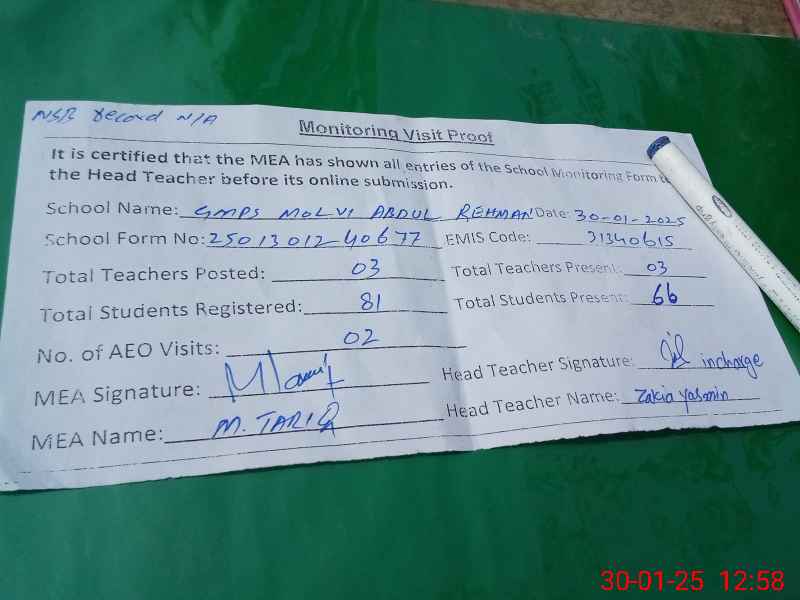 NSB record N/A
Monitoring Visit Proof
It is certified that the MEA has shown all entries of the School Monitoring Form to
the Head Teacher before its online submission.
School Name: GMPS MOLVI ABDUL REHMAN Date: 30-01-2025
School Form No: 2501301240677 EMIS Code: 31340615
Total Teachers Posted: 03 Total Teachers Present: 03
Total Students Registered: 81 Total Students Present: 66
No. of AEO Visits: 02
MEA Signature: Head Teacher Signature: incharge
MEA Name: M. TARIQ Head Teacher Name: Zakia Yasmin
30-01-25 12:58